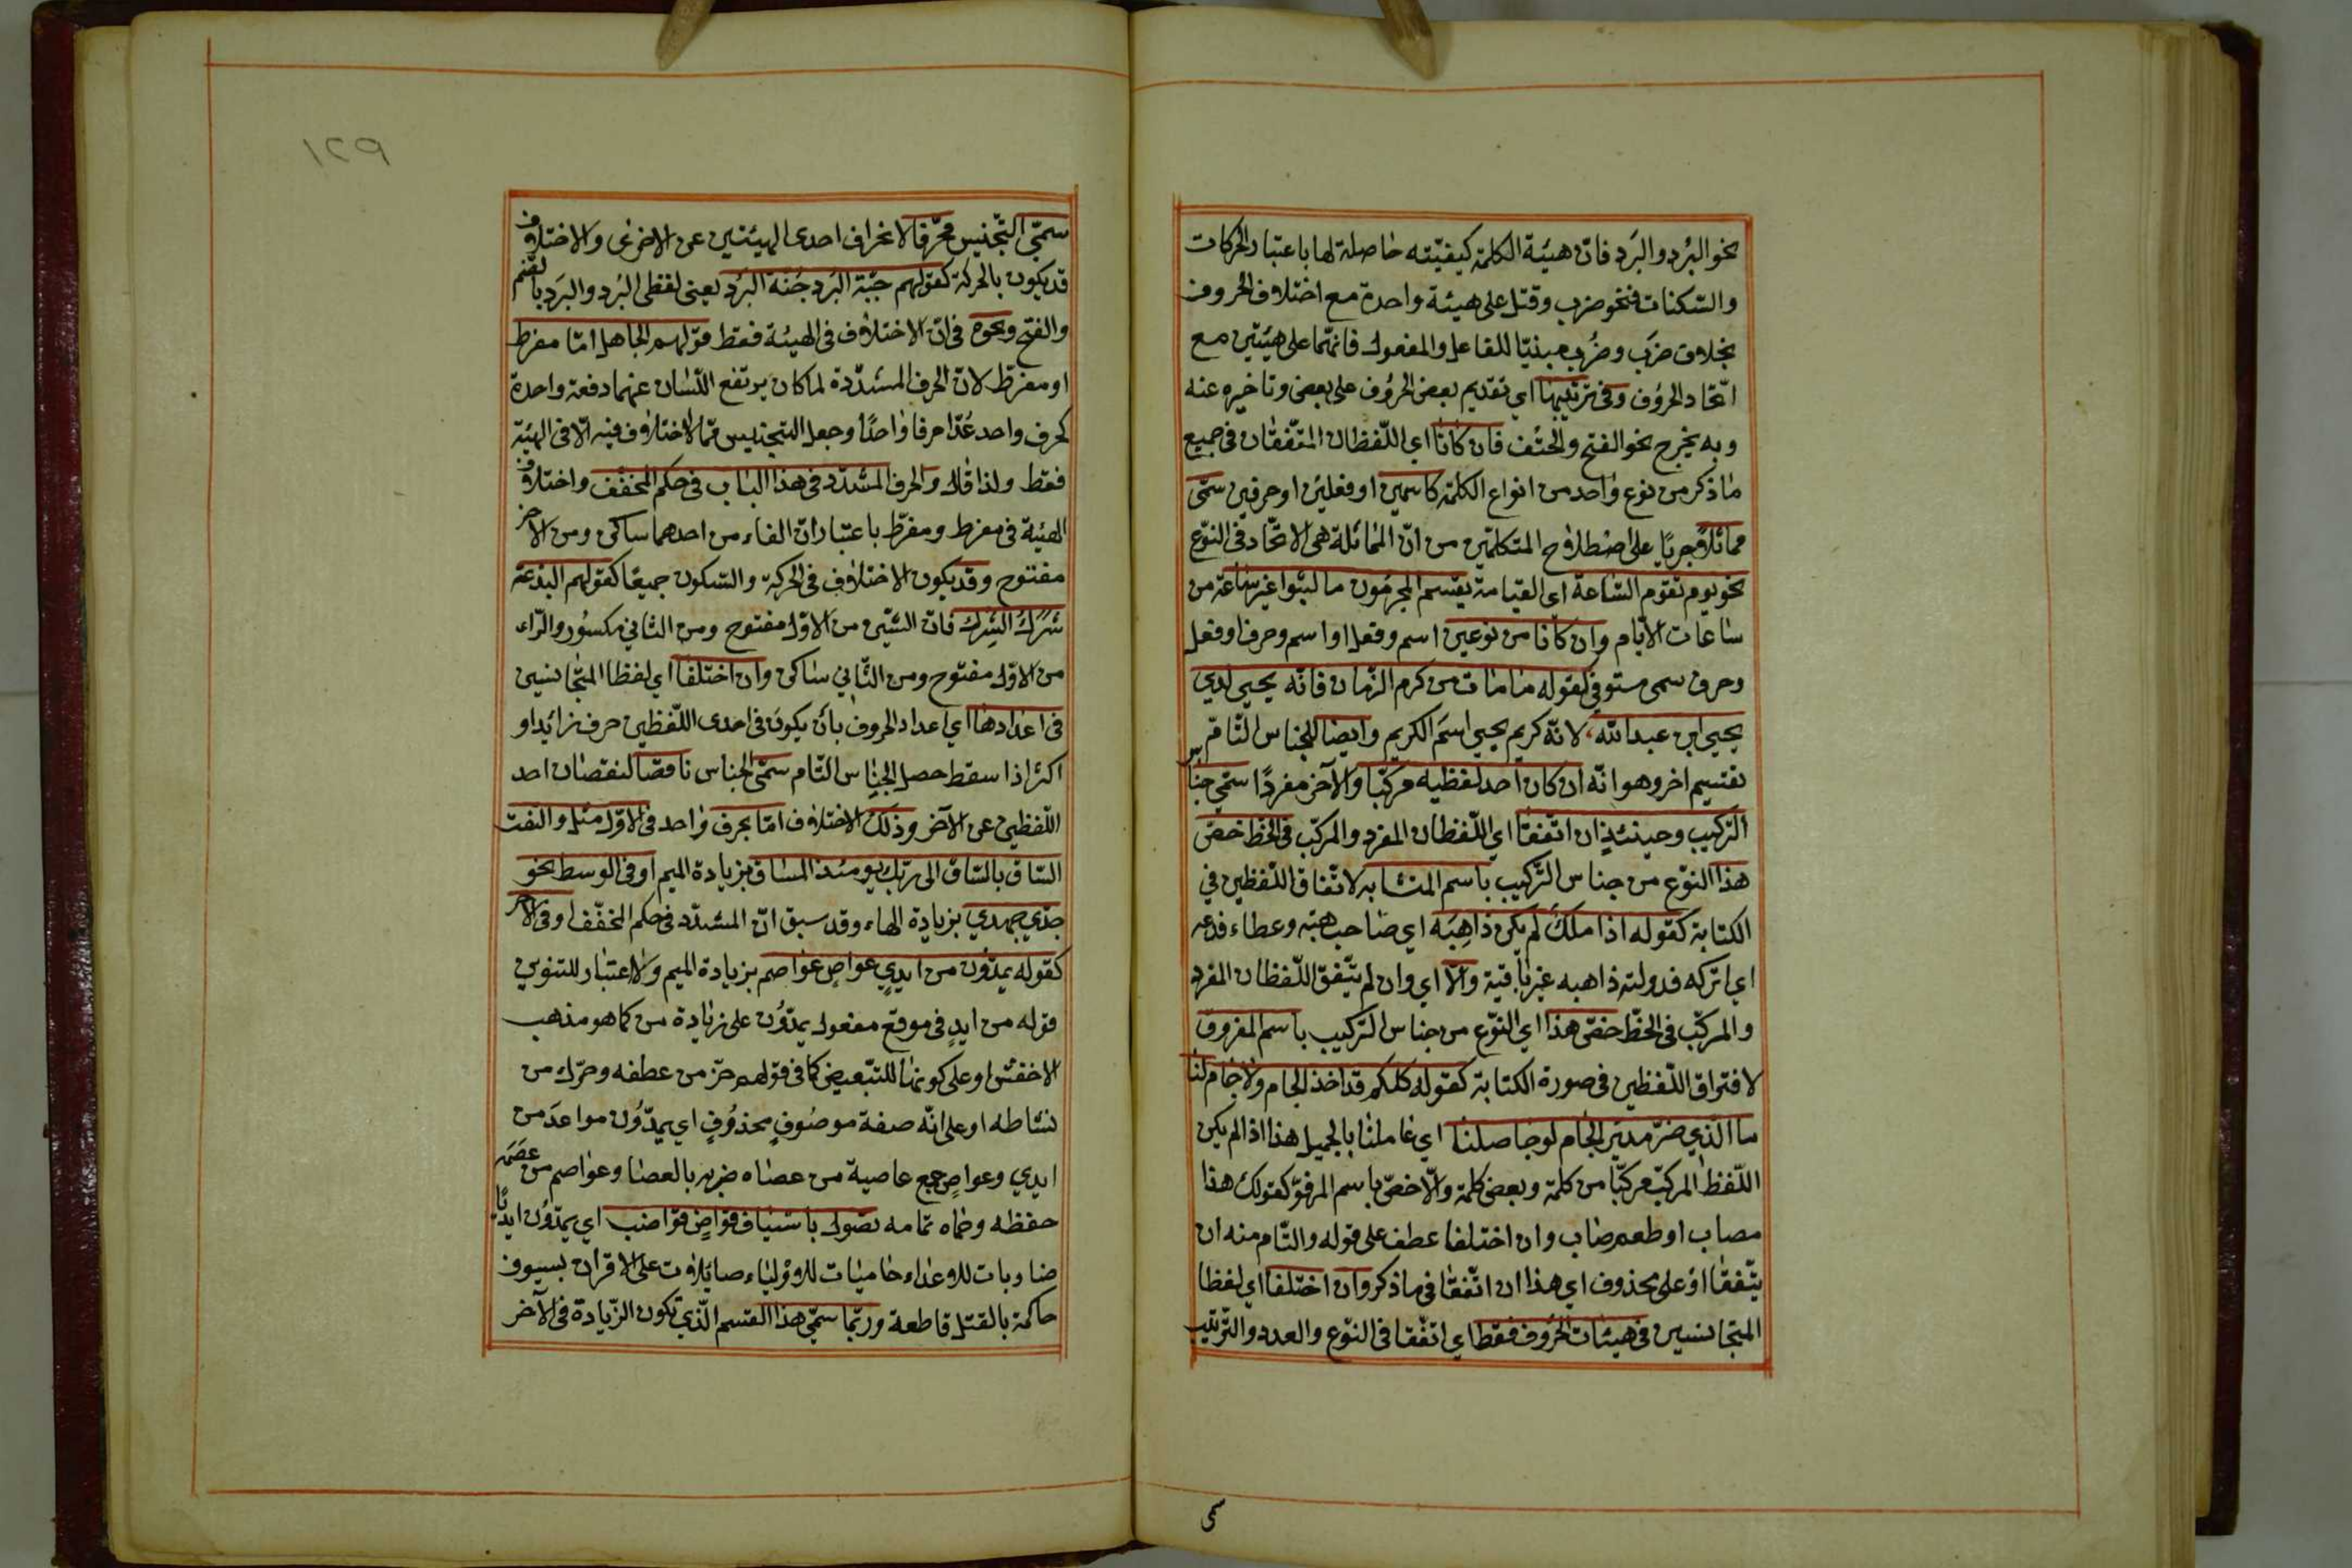 نحو البُرد والبَرد فانّ هيئة الكلمة كيفيّته حاصلة لها باعتبار الحركات
والسّكنات فنحو ضرب وقتل على هيئة واحدة مع اختلاف الحروف
بخلاف ضَرَب وضُرِب مبنيّا للفاعل والمفعول فانّهما على هيئتين مع
اتّحاد الحروف وفى ترتيبها اي تقديم بعض الحروف على بعض وتاخيره عنه
وبه يخرج نحو الفتح والحتف فان كانا اي اللّفظان المتّفقان فى جميع
ماذكر من نوع واحد من انواع الكلمة كاسمين او فعلين او حرفين سمّى
مماثلا جريًا على اصطلاح المتكلمين من انّ المماثلة هى الاتّحاد فى النّوع
نحو يوم تقوم السّاعة اى القيامة يقسم المجرمون ما لبثوا غير ساعة من
ساعات الايّام وان كانا من نوعين اسم وفعل او اسم وحرف او فعل
وحرف سمى مستوفى كقوله ما مات من كرم الزّمان فانّه يحيى لدي
يحيى ابن عبدالله، لانّه كريم يحيى اسم الكريم وايضا للجناس التّامّ
تقسيم اخر وهو انّه ان كان احد لفظيه مركّبا والآخر مفردًا سمّي جناس
التركيب وحينئذٍ ان اتّفقا اي اللّفظان المفرد والمركّب فى الخطّ خصّ
هذا النوّع من جناس التّركيب باسم المتشابه لاتّفاق اللّفظين في
الكتابة كقوله اذا ملك لم يكن ذاهِبَه اي صاحب هبة وعطاء فدعه
اي اتركه فدولته ذاهبه غير باقية والّا اي وان لم يتّفق اللّفظان المفرد
والمركّب فى الخطّ خصّ هذا اي النّوع من جناس التّركيب باسم المفروق
لافتراق اللّفظين فى صورة الكتابة كقوله كلكم قد اخذ الجام ولا جام لنا
ما الّذي ضرّ مدير الجام لو جاملنا اي عاملنا بالجميل هذا اذا لم يكن
اللّفظ المركّب مركّبا من كلمة وبعض كلمة والّا خصّ باسم المرفوّ كقولك هذا
مصاب او طعم صاب وان اختلفا عطف على قوله والتّام منه ان
يتّفقا او على محذوف اي هذا ان اتّفقا فى ماذكر وان اختلفا اي لفظا
المتجانسين فى هيئات الحروف فقط اي اتّفقا فى النوّع والعدد والتّرتيب
سمى
١٢٩
سمّي التّجنيس محرّفا لانحراف احدى الهيئتين عن الاخرى والاختلاف
قد يكون بالحركة كقولهم جبّة البُرد جُنّة البَرد يعنى لفظى البُرد والبَرد بالضّم
والفتح ونحوه فى انّ الاختلاف فى الهيئة فقط قولهم الجاهل امّا مفرط
او مفرّط لانّ الحرف المشدّدة لما كان يرتفع اللّسان عنهما دفعة واحدة
كحرف واحد عُدّا حرفا واحدًا وجعل التجنيس ممّا لا اختلاف فيه الّا فى الهيئة
فقط ولذا قال والحرف المشدّد فى هذا الباب فى حكم المخفّف واختلاف
الهيئة فى مفرط ومفرّط باعتبار انّ الفاء من احدهما ساكن ومن الآخر
مفتوح وقد يكون الاختلاف فى الحركة والسّكون جميعًا كقولهم البدعة
شَرَك الشِّرك فانّ الشّين من الاوّل مفتوح ومن الثّاني مكسور والرّاء
من الاوّل مفتوح ومن الثّاني ساكن وان اختلفا اي لفظا المتجانسين
فى اعدادها اي اعداد الحروف بان يكون فى احدى اللّفظين حرف زائد او
اكثر اذا سقط حصل الجناس التّام سمّى الجناس ناقصًا لنقصان احد
اللّفظين عن الآخر وذلك الاختلاف امّا بحرف واحد فى الاوّل مثل والتفّت
السّاق بالسّاق الى ربّك يومئذ المساق بزيادة الميم او فى الوسط نحو
جدّي جهدي بزيادة الهاء وقد سبق انّ المشدّد فى حكم المخفّف او فى الآخر
كقوله يمدّون من ايديٍ عواصٍ عواصم بزيادة الميم ولا اعتبار للتنوين
قوله من ايدٍ فى موقع مفعول يمدّون على زيادة من كما هو مذهب
الاخفش او على كونها للتّبعيض كما فى قولهم هزّ من عطفه وحرّك من
نشاطه او على انّه صفة موصوفٍ محذوفٍ اي يمدّون سواعدَ من
ايدي وعواصٍ جمع عاصية من عصاه ضربه بالعصا وعواصم من عصَمه
حفظه وحماه تمامه تصول باسياف قواضٍ قواضب اي يمدّون ايديًا
ضاربات للاعداء حاميات للاولياء صائلات على الاقران بسيوف
حاكمة بالقتل قاطعة وربّما سمّي هذا القسم الّذي تكون الزّيادة فى الآخر